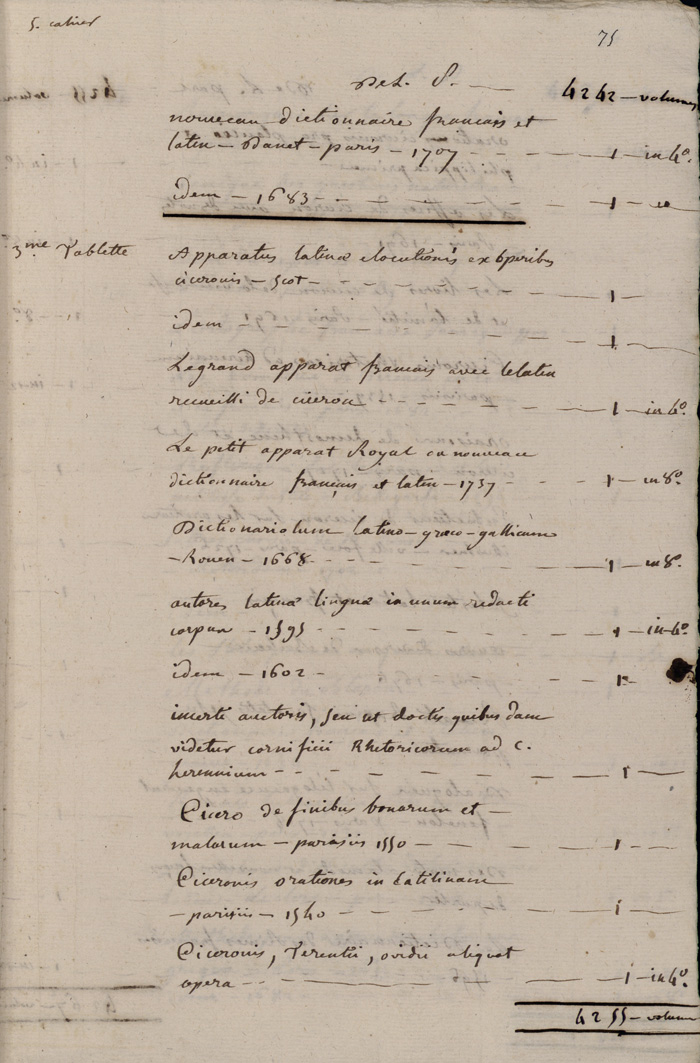 5. cahier
75
Del. P. — 4242 — volumes
nouveau dictionnaire francais et
latin — Danet — paris — 1707 — 1 — in 4°.
idem — 1683 — 1 —
3me Tablette
Apparatus latinæ elocutionis ex operibus
ciceronis — Scot — 1 —
idem — 1 —
Le grand apparat francais avec le latin
recueilli de ciceron — 1 — in 4°.
Le petit apparat Royal ou nouveau
dictionnaire français et latin — 1737 — 1 — in 8°
Dictionariolum latino-græco-gallicum
— Rouen — 1668 — 1 — in 8°.
autores latinæ linguæ in unum redacti
corpus — 1595 — 1 — in 4°.
idem — 1602 — 1 —
incerti auctoris, seu ut doctis quibusdam
videtur cornificii Rhetoricorum ad C.
herennium — 1 —
Cicero de finibus bonorum et —
malorum — parisiis 1550 — 1 —
Ciceronis orationes in Catilinam
— parisiis — 1540 — 1 —
Ciceronis, Terentii, ovidii aliquot
opera — 1 — in 4°.
4255 — volum